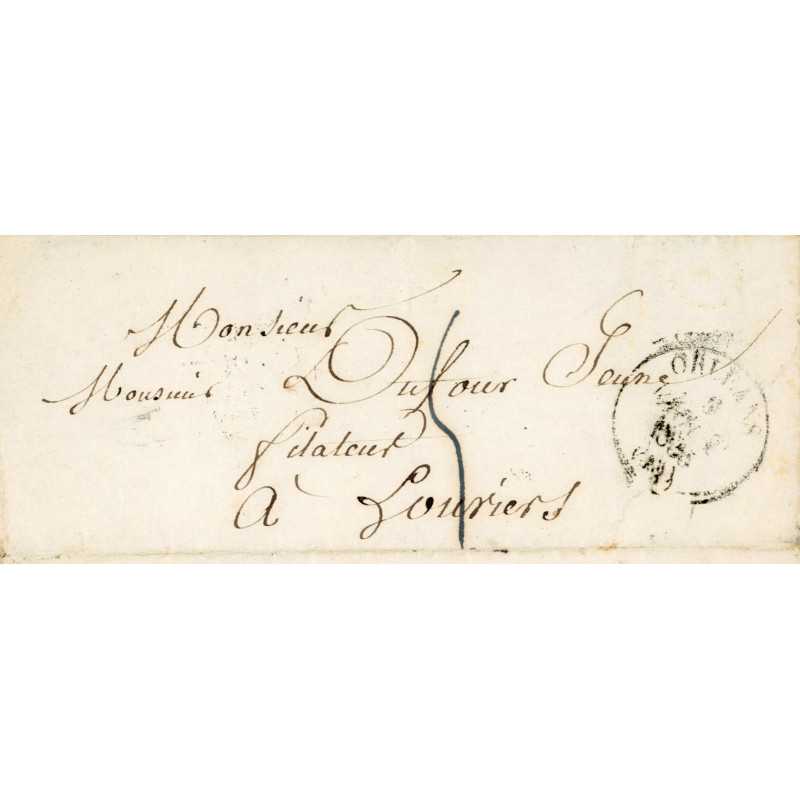 Monsieur
Monsieur Dufour Jeune
filateur
à Louviers
ORLEANS